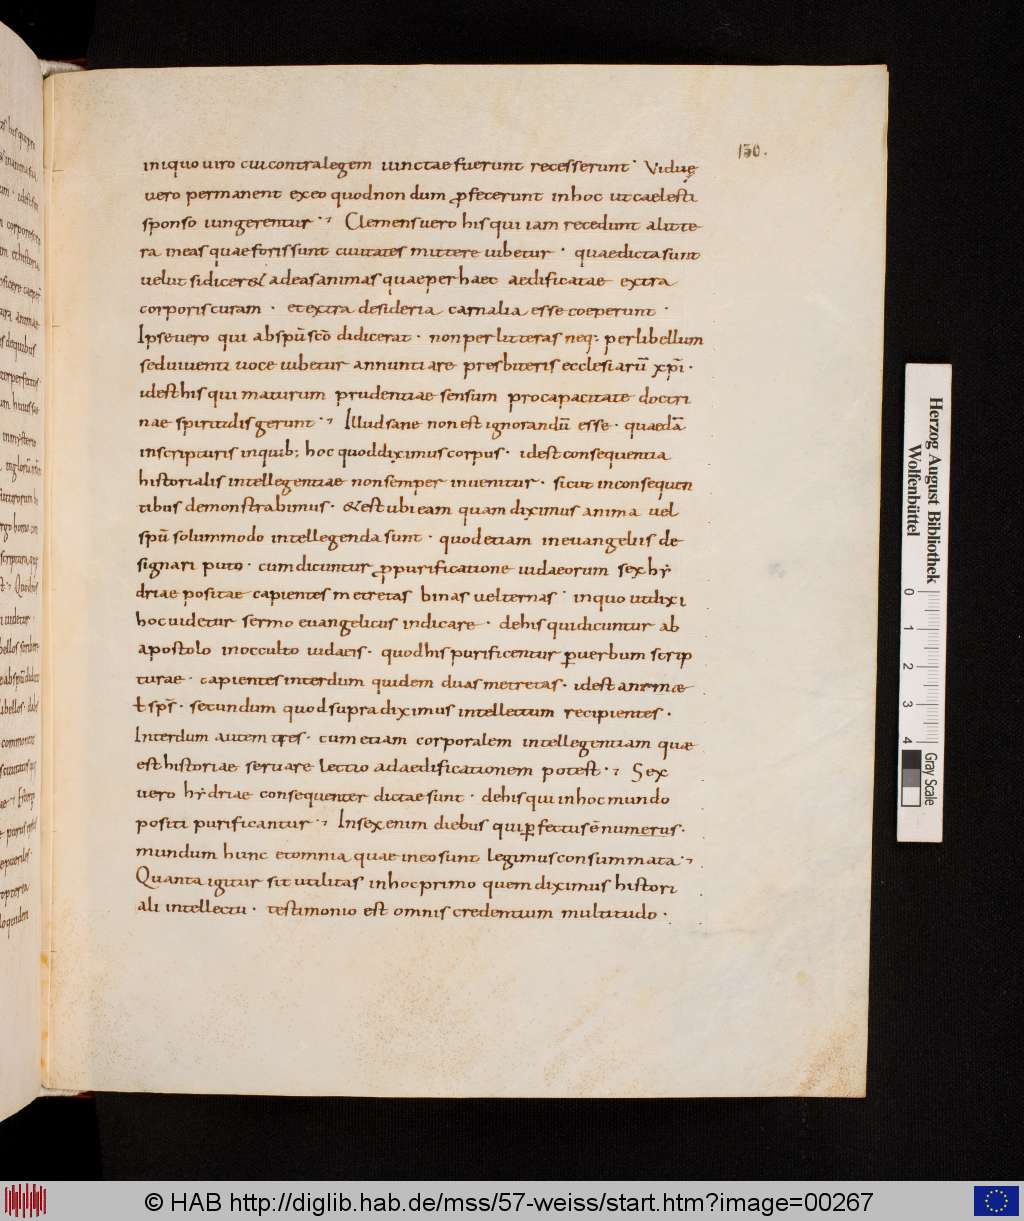 130.
iniquo uiro cui contra legem iunctae fuerunt recesserunt· Viduę
uero permanent ex eo quod non dum ꝓfecerunt in hoc ut caelesti
sponso iungerentur·⁊ Clemens uero his qui iam recedunt alitte
ra meas quae foris sunt ciuitates mittere iubetur· quae dicta sunt
uelut si diceret adeas animas quae per haec aedificatae extra
corporis curam· et extra desideria carnalia esse coeperunt·
Ipse uero qui ab spū scō didicerat· non per litteras neq: per libellum
sed uiuenti uoce iubetur annuntiare presbiteris ecclesiarū xp̄i·
id est his qui maturum prudentiae sensum pro capacitate doctri
nae spiritalis gerunt·⁊ Illud sane non est ignorandū esse· quaedā
in scripturis in quib; hoc quod diximus corpus· id est consequentia
historialis intellegentiae non semper inuenitur· sicut in consequen
tibus demonstrabimus· & est ubi eam quam diximus anima uel
spū solummodo intellegenda sunt· quod etiam in euangeliis de
signari puto· cum dicuntur ꝓpurificatione iudaeorum sex hẏ
driae positae capientes metretas binas uel ternas· in quo ut dixi
hoc uidetur sermo euangelicus indicare· de his qui dicuntur ab
apostolo in occulto iudaeis· quod his purificentur ꝑuerbum scrip
turae· capientes interdum quidem duas metretas· id est animæ
ł sp̄s· secundum quod supra diximus intellectum recipientes·
Interdum autem tres· cum etiam corporalem intellegentiam quæ
est historiae seruare lectio ad aedificationem potest·⁊ Sex
uero hẏdriae consequenter dictae sunt· de his qui in hoc mundo
positi purificantur·⁊ In sex enim diebus qui ꝑfectus ē numerus·
mundum hunc et omnia quae in eo sunt legimus consummata·⁊
Quanta igitur sit utilitas in hoc primo quem diximus histori
ali intellectu· testimonio est omnis credentium multitudo·
Herzog August Bibliothek
Wolfenbüttel
0 1 2 3 4
Gray Scale
© HAB http://diglib.hab.de/mss/57-weiss/start.htm?image=00267